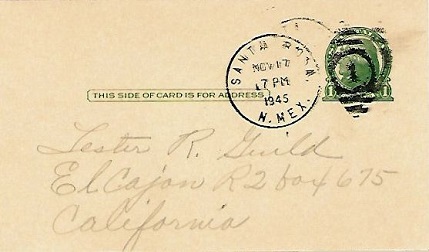 SANTA ROSA
NOV 17
17 PM
1945
N. MEX.
1
1
THIS SIDE OF CARD IS FOR ADDRESS
Lester R. Guild
El Cajon R2 box 675
California